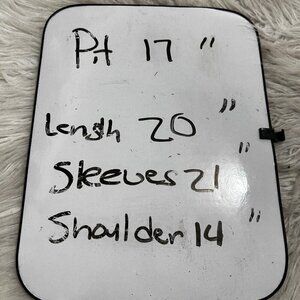 Pit 17 "
Length 20 "
Sleeves 21 "
Shoulder 14 "